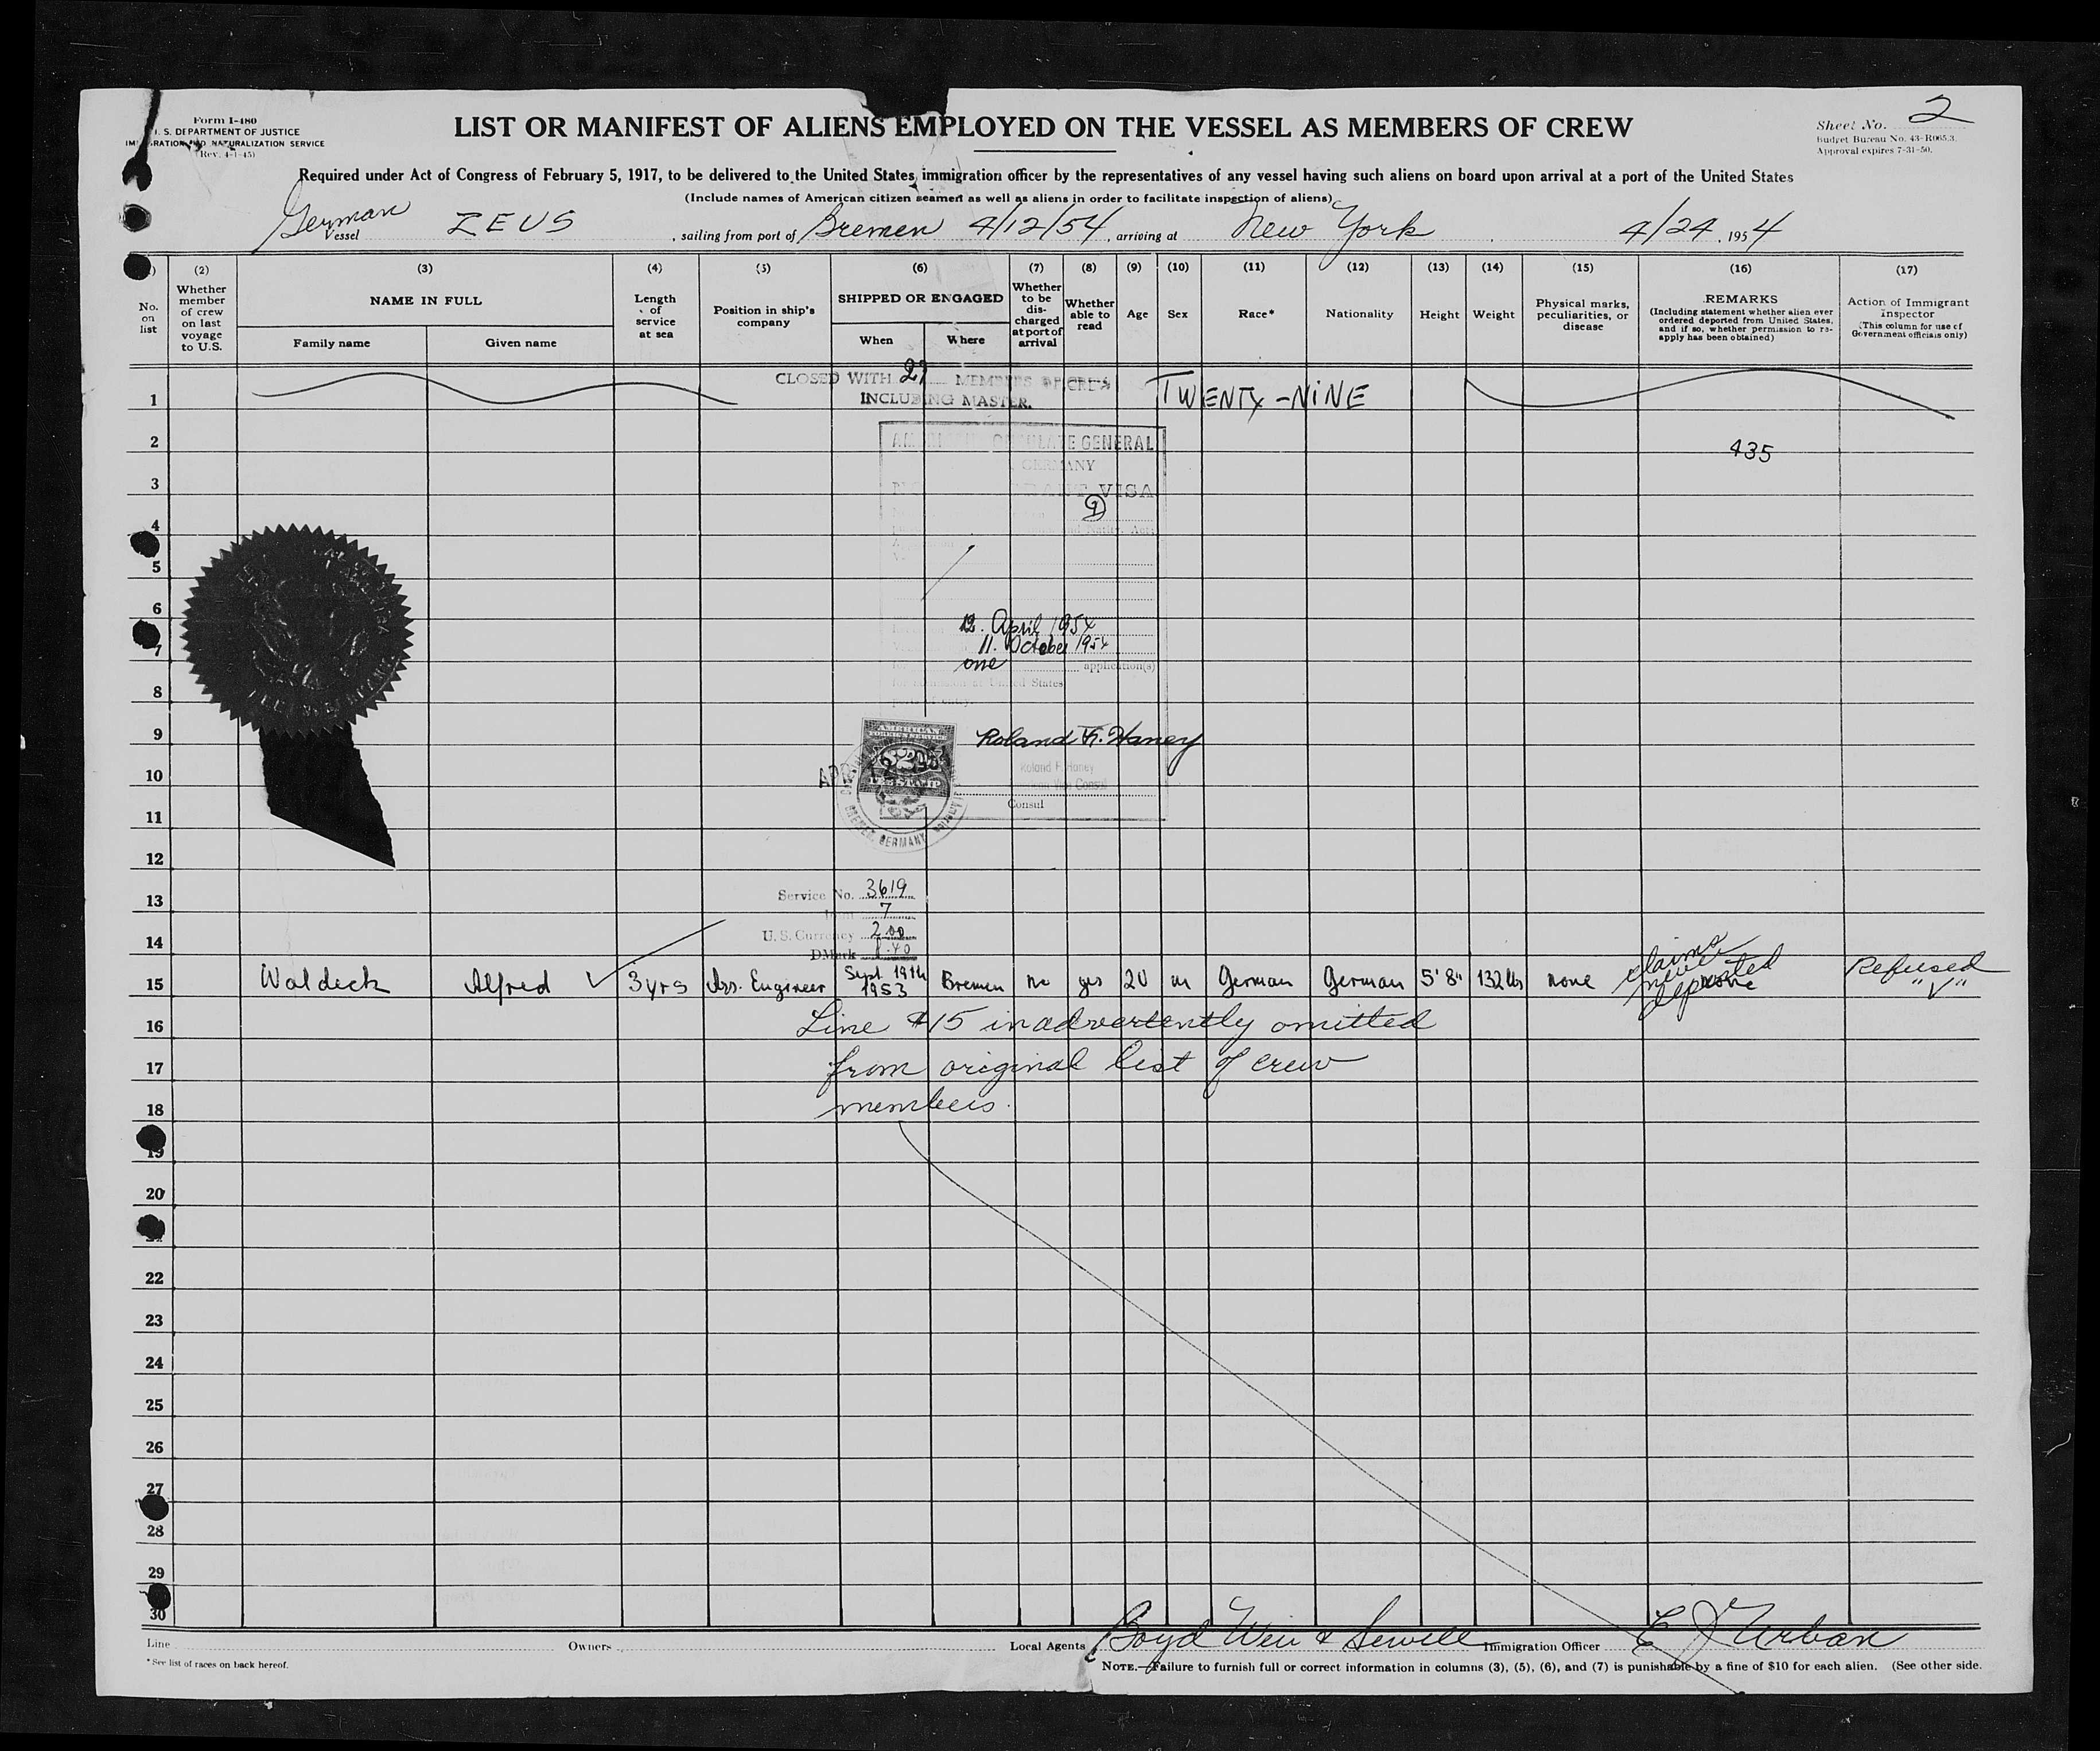 Form I-480
U. S. DEPARTMENT OF JUSTICE
IMMIGRATION AND NATURALIZATION SERVICE
(Rev. 4-1-45)
LIST OR MANIFEST OF ALIENS EMPLOYED ON THE VESSEL AS MEMBERS OF CREW
Sheet No. 2
Budget Bureau No. 43-R065.3.
Approval expires 7-31-50.
Required under Act of Congress of February 5, 1917, to be delivered to the United States immigration officer by the representatives of any vessel having such aliens on board upon arrival at a port of the United States
(Include names of American citizen seamen as well as aliens in order to facilitate inspection of aliens)
German
Vessel ZEUS, sailing from port of Bremen 4/12/54, arriving at New York 4/24, 1954
(2) (3) (4) (5) (6) (7) (8) (9) (10) (11) (12) (13) (14) (15) (16) (17)
No. on list
Whether member of crew on last voyage to U.S.
NAME IN FULL
Family name
Given name
Length of service at sea
Position in ship's company
SHIPPED OR ENGAGED
When
Where
Whether to be discharged at port of arrival
Whether able to read
Age
Sex
Race*
Nationality
Height
Weight
Physical marks, peculiarities, or disease
REMARKS
(Including statement whether alien ever ordered deported from United States, and if so, whether permission to reapply has been obtained)
Action of Immigrant Inspector
(This column for use of Government officials only)
CLOSED WITH 29 MEMBERS OF CREW TWENTY-NINE
INCLUDING MASTER.
1
GENERAL
2
435
GERMANY
VISA
3
4
5
6
12. April 1954
11. October 1954
7
one application(s)
for admission at United States
ports of entry.
8
AMERICAN
FOREIGN SERVICE
Roland F. Haney
9
Roland F. Haney
APR 12 1954
American Vice Consul
10
Consul
11
BREMEN, GERMANY
12
Service No. 3619
13
7
U. S. Currency 2.00
14
DMark
15 Waldeck Alfred 3 yrs Ass. Engineer Sept. 19th 1953 Bremen no yes 20 m German German 5' 8" 132 lbs none claims never deported Refused "V"
16 Line #15 inadvertently omitted
17 from original list of crew
18 members.
19
20
22
23
24
25
26
27
28
29
30
Line Owners Local Agents Boyd Weir & Sewell Immigration Officer E J Urban
*See list of races on back hereof.
NOTE.—Failure to furnish full or correct information in columns (3), (5), (6), and (7) is punishable by a fine of $10 for each alien. (See other side.